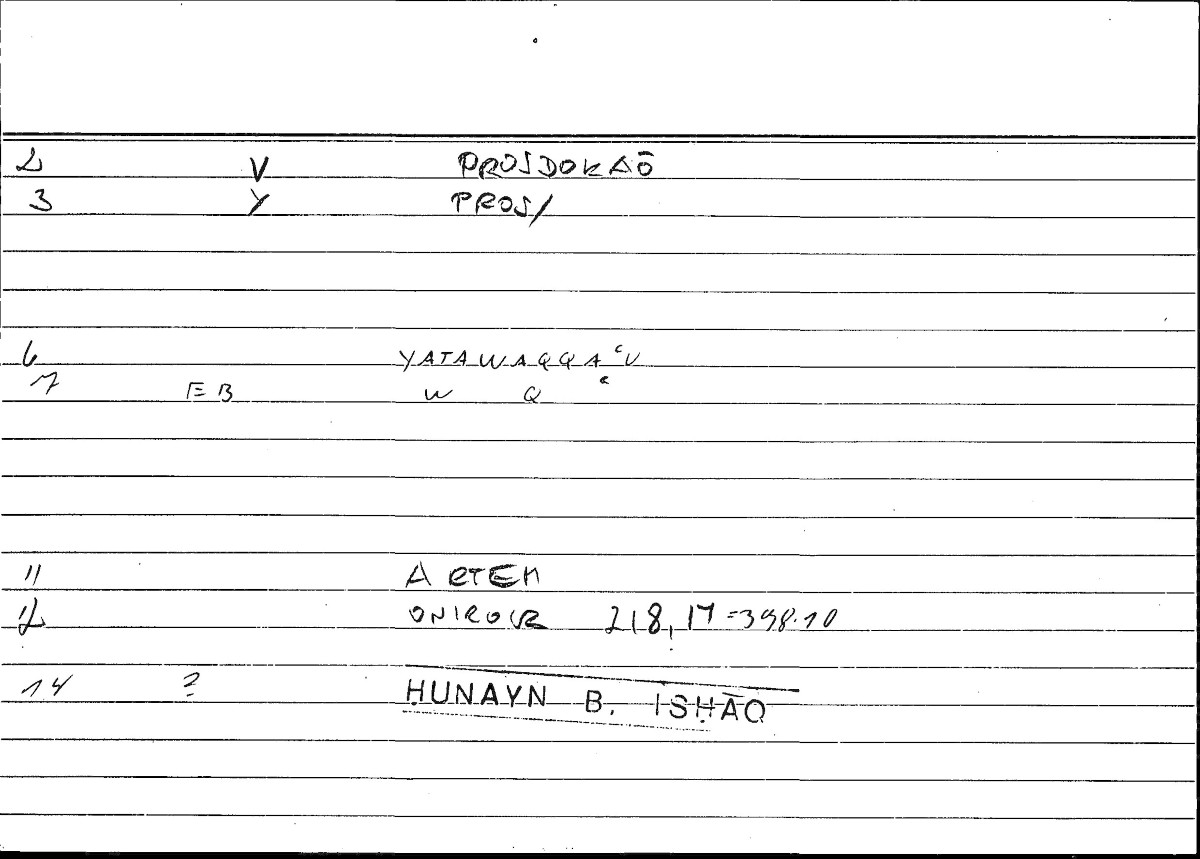 2 V PROSDOKAŌ
3 Y PROS/
6 YATAWAQQAʿU
7 EB W Q ʿ
11 ARTEM
12 ONIROCR 218,17=398.10
14 ? ḤUNAYN B. ISḤĀQ